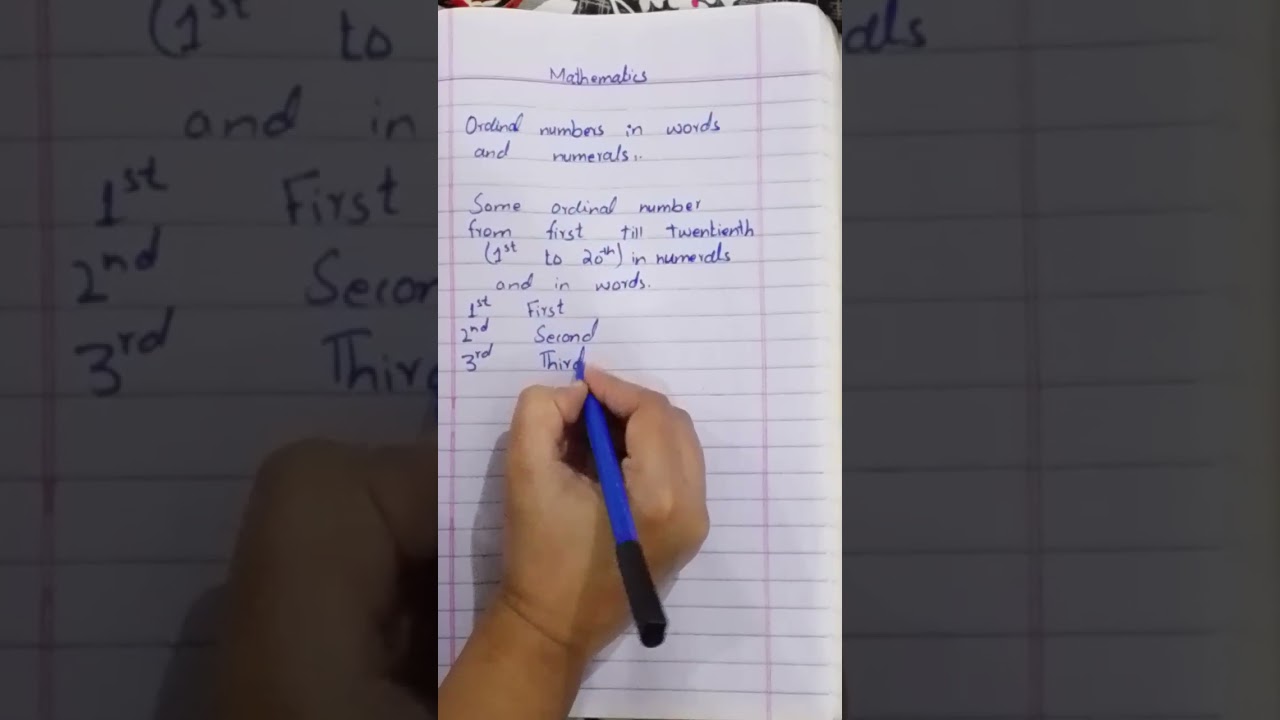 Mathematics
Ordinal numbers in words
and numerals..
Some ordinal number
from first till twentienth
(1st to 20th) in numerals
and in words.
1st First
2nd Second
3rd Third